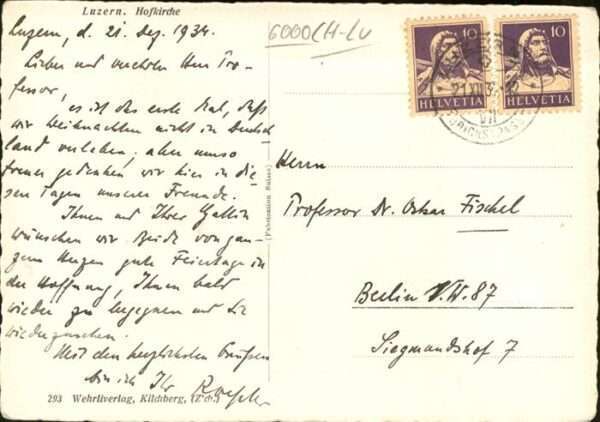 Luzern. Hofkirche
6000 CH-LU
Luzern, d. 21. Dez. 1934.
Lieber und verehrter Herr Pro-
fessor,
es ist das erste Mal, daß
wir Weihnachten nicht in Deutsch
land verleben, aber umso
treuer gedenken wir hier in die-
sen Tagen unserer Freunde.
Ihnen und Ihrer Gattin
wünschen wir Beide von gan-
zem Herzen gute Feiertage in
der Hoffnung, Ihnen bald
wieder zu begegnen und Sie
wiederzusehen.
Mit den herzlichsten Grüßen
bin ich Ihr
293 Wehrliverlag, Kilchberg, (Zch.)
(Fabrication Suisse)
10
HELVETIA
10
HELVETIA
Herrn
Professor Dr. Oskar Fischel
Berlin N.W.87
Siegmundshof 7